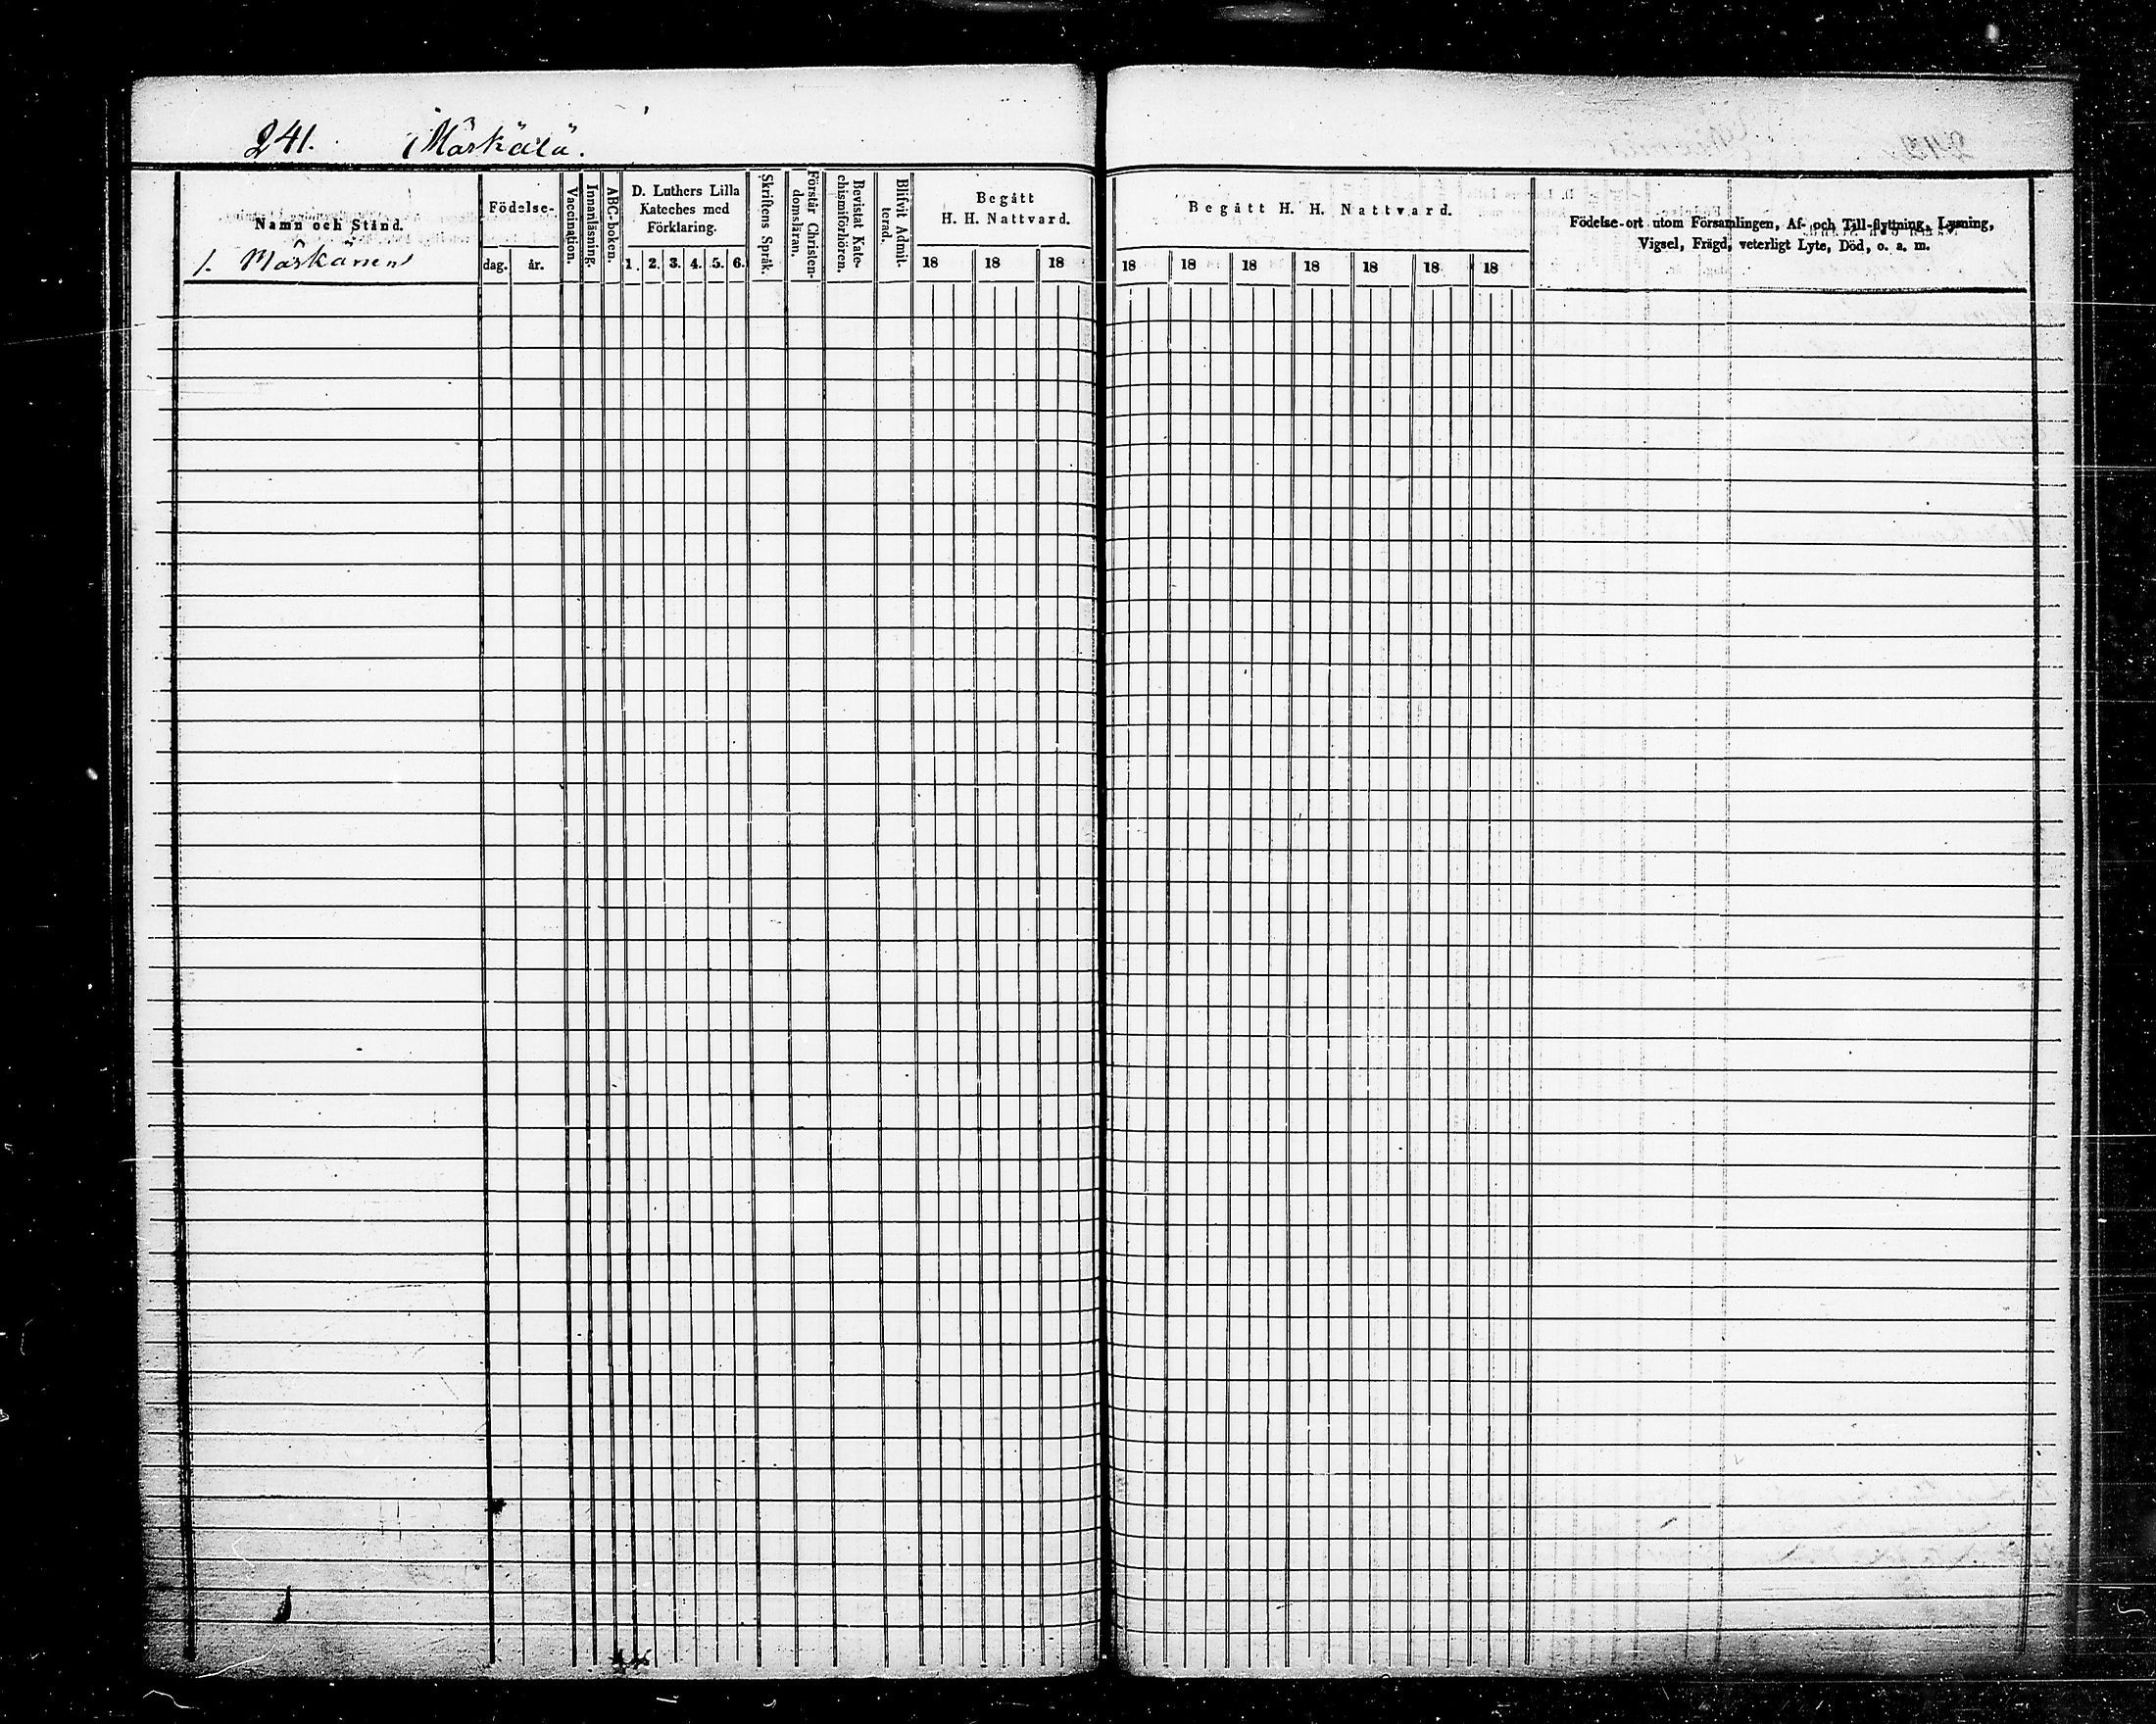 241. Märkälä.
Namn och Stånd.
1. Märkänen
Födelse-
dag. år.
Vaccination.
Innanläsning.
ABC-boken.
D. Luthers Lilla
Kateches med
Förklaring.
1. 2. 3. 4. 5. 6.
Skriftens Språk.
Förstår Christen-
domsläran.
Bevistat Kate-
chismiförhören.
Blifvit Admit-
terad.
Begått
H. H. Nattvard.
18 18 18
Begått H. H. Nattvard.
18 18 18 18 18 18 18
Födelse-ort utom Församlingen, Af- och Till-flyttning, Lysning,
Vigsel, Frägd, veterligt Lyte, Död, o. a. m.